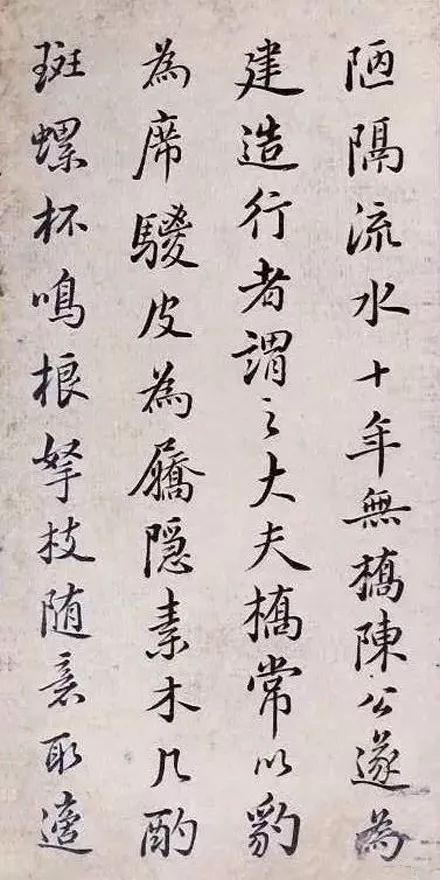 陋隔流水十年無橋陳公遂為
建造行者謂之大夫橋常以豹
為席騣皮為屩隱素木几酌
斑螺杯鳴榔拏枝随意取適